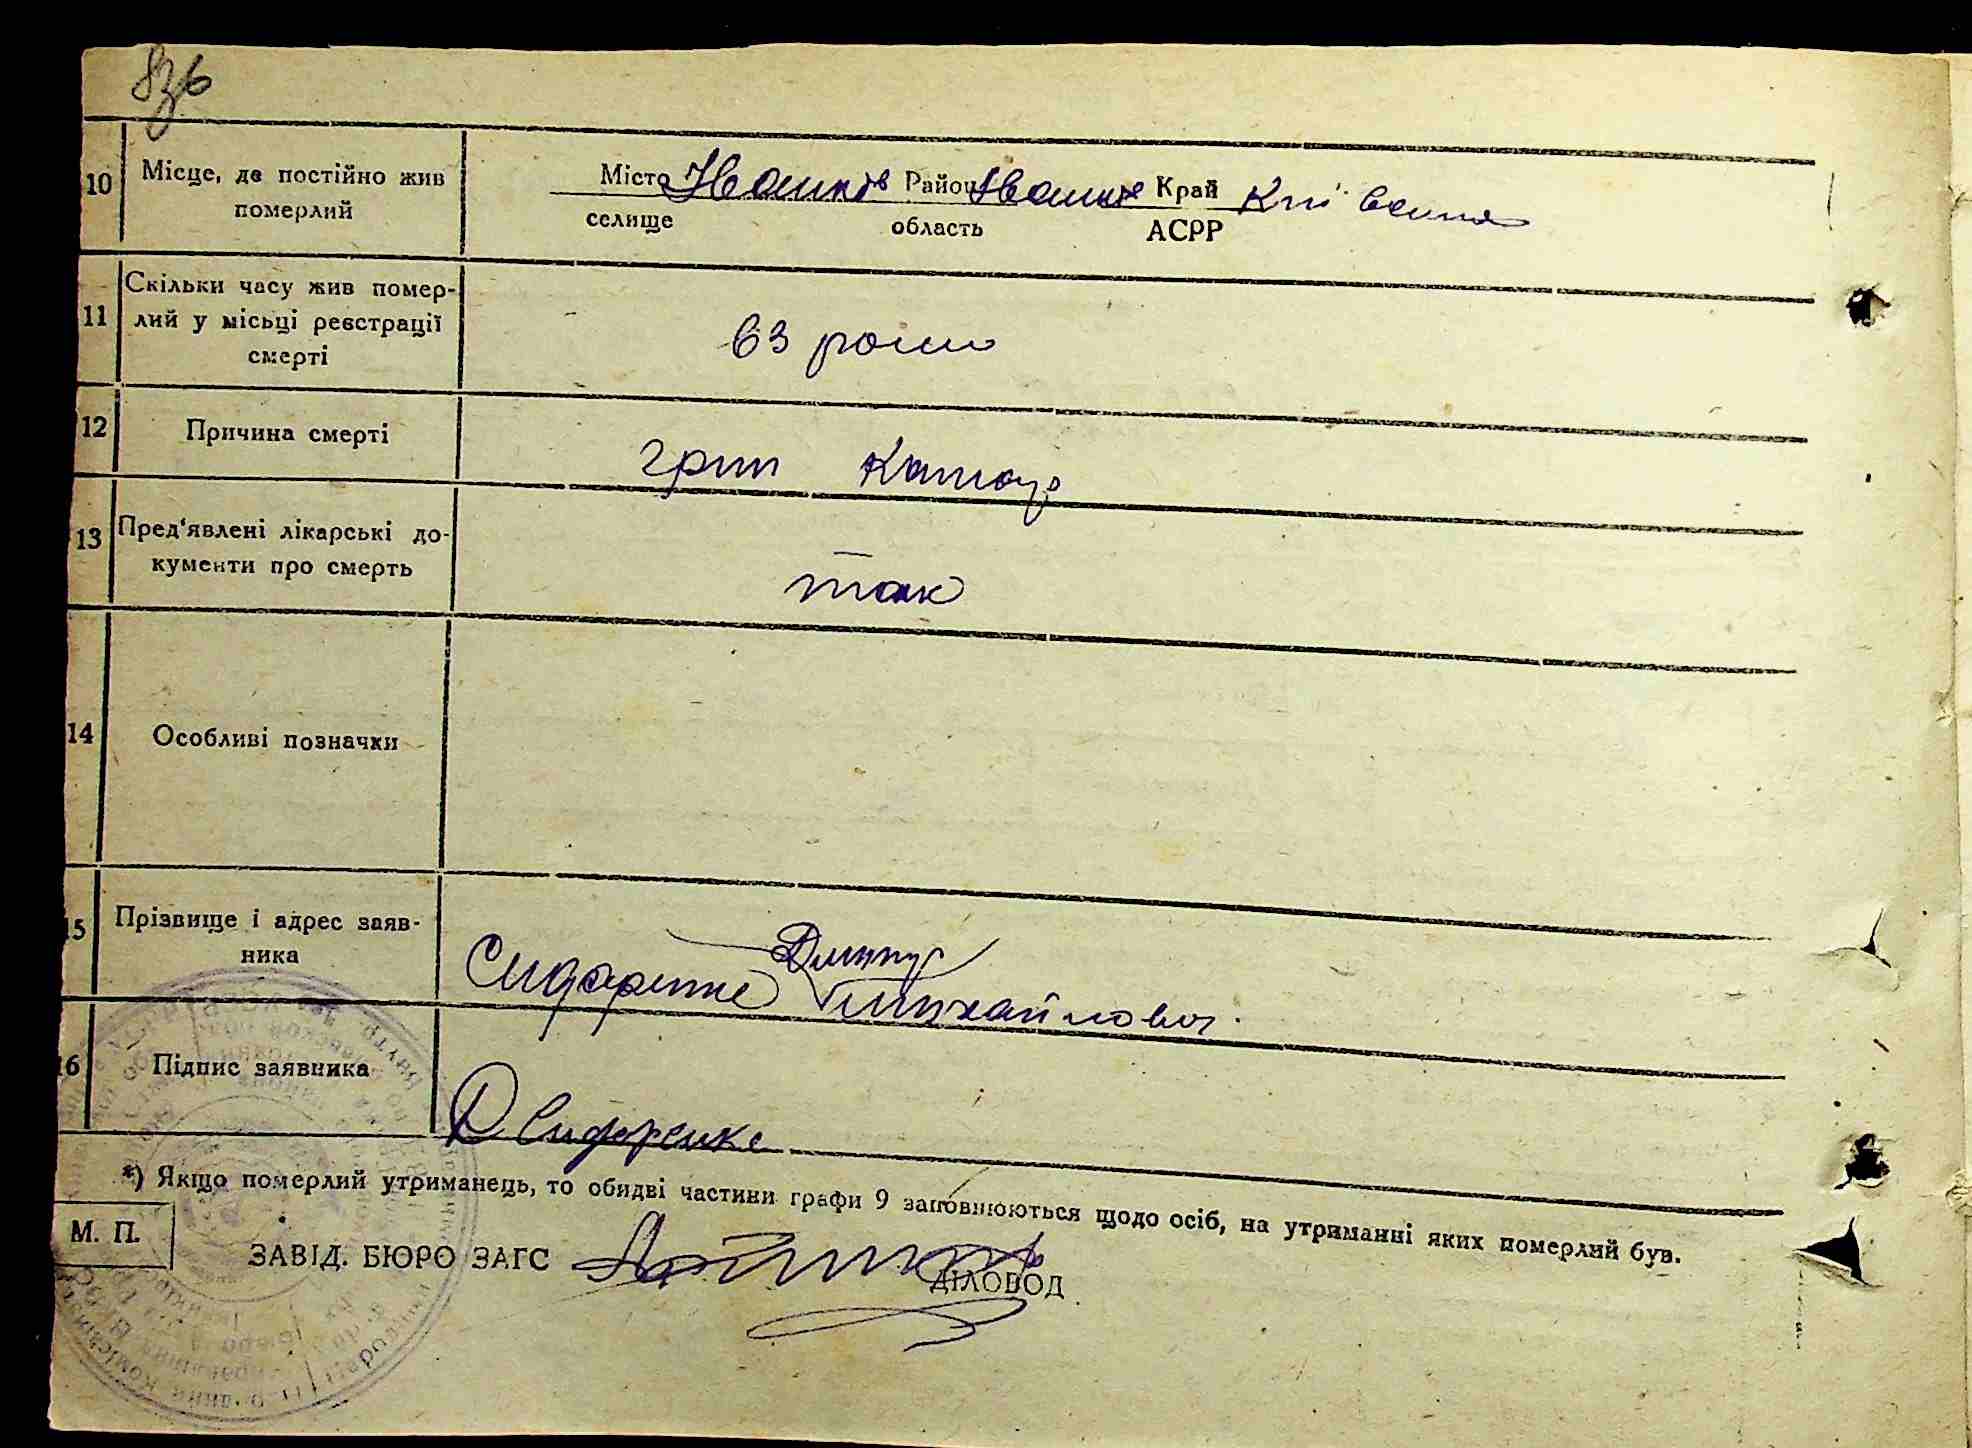 836
10 Місце, де постійно жив
померлий
Місто Іванків Район Іванків Край Київська
селище область АСРР
11 Скільки часу жив помер-
лий у місьці реєстрації
смерті
63 роки
12 Причина смерті
грип Катар
13 Пред'явлені лікарські до-
кументи про смерть
так
14 Особливі позначки
15 Прізвище і адрес заяв-
ника
Дмитро
Сидоренко Михайлович
16 Підпис заявника
Д Сидоренко
*) Якщо померлий утриманець, то обидві частини графи 9 заповнюються щодо осіб, на утриманні яких померлий був.
М. П.
ЗАВІД. БЮРО ЗАГС
ДІЛОВОД